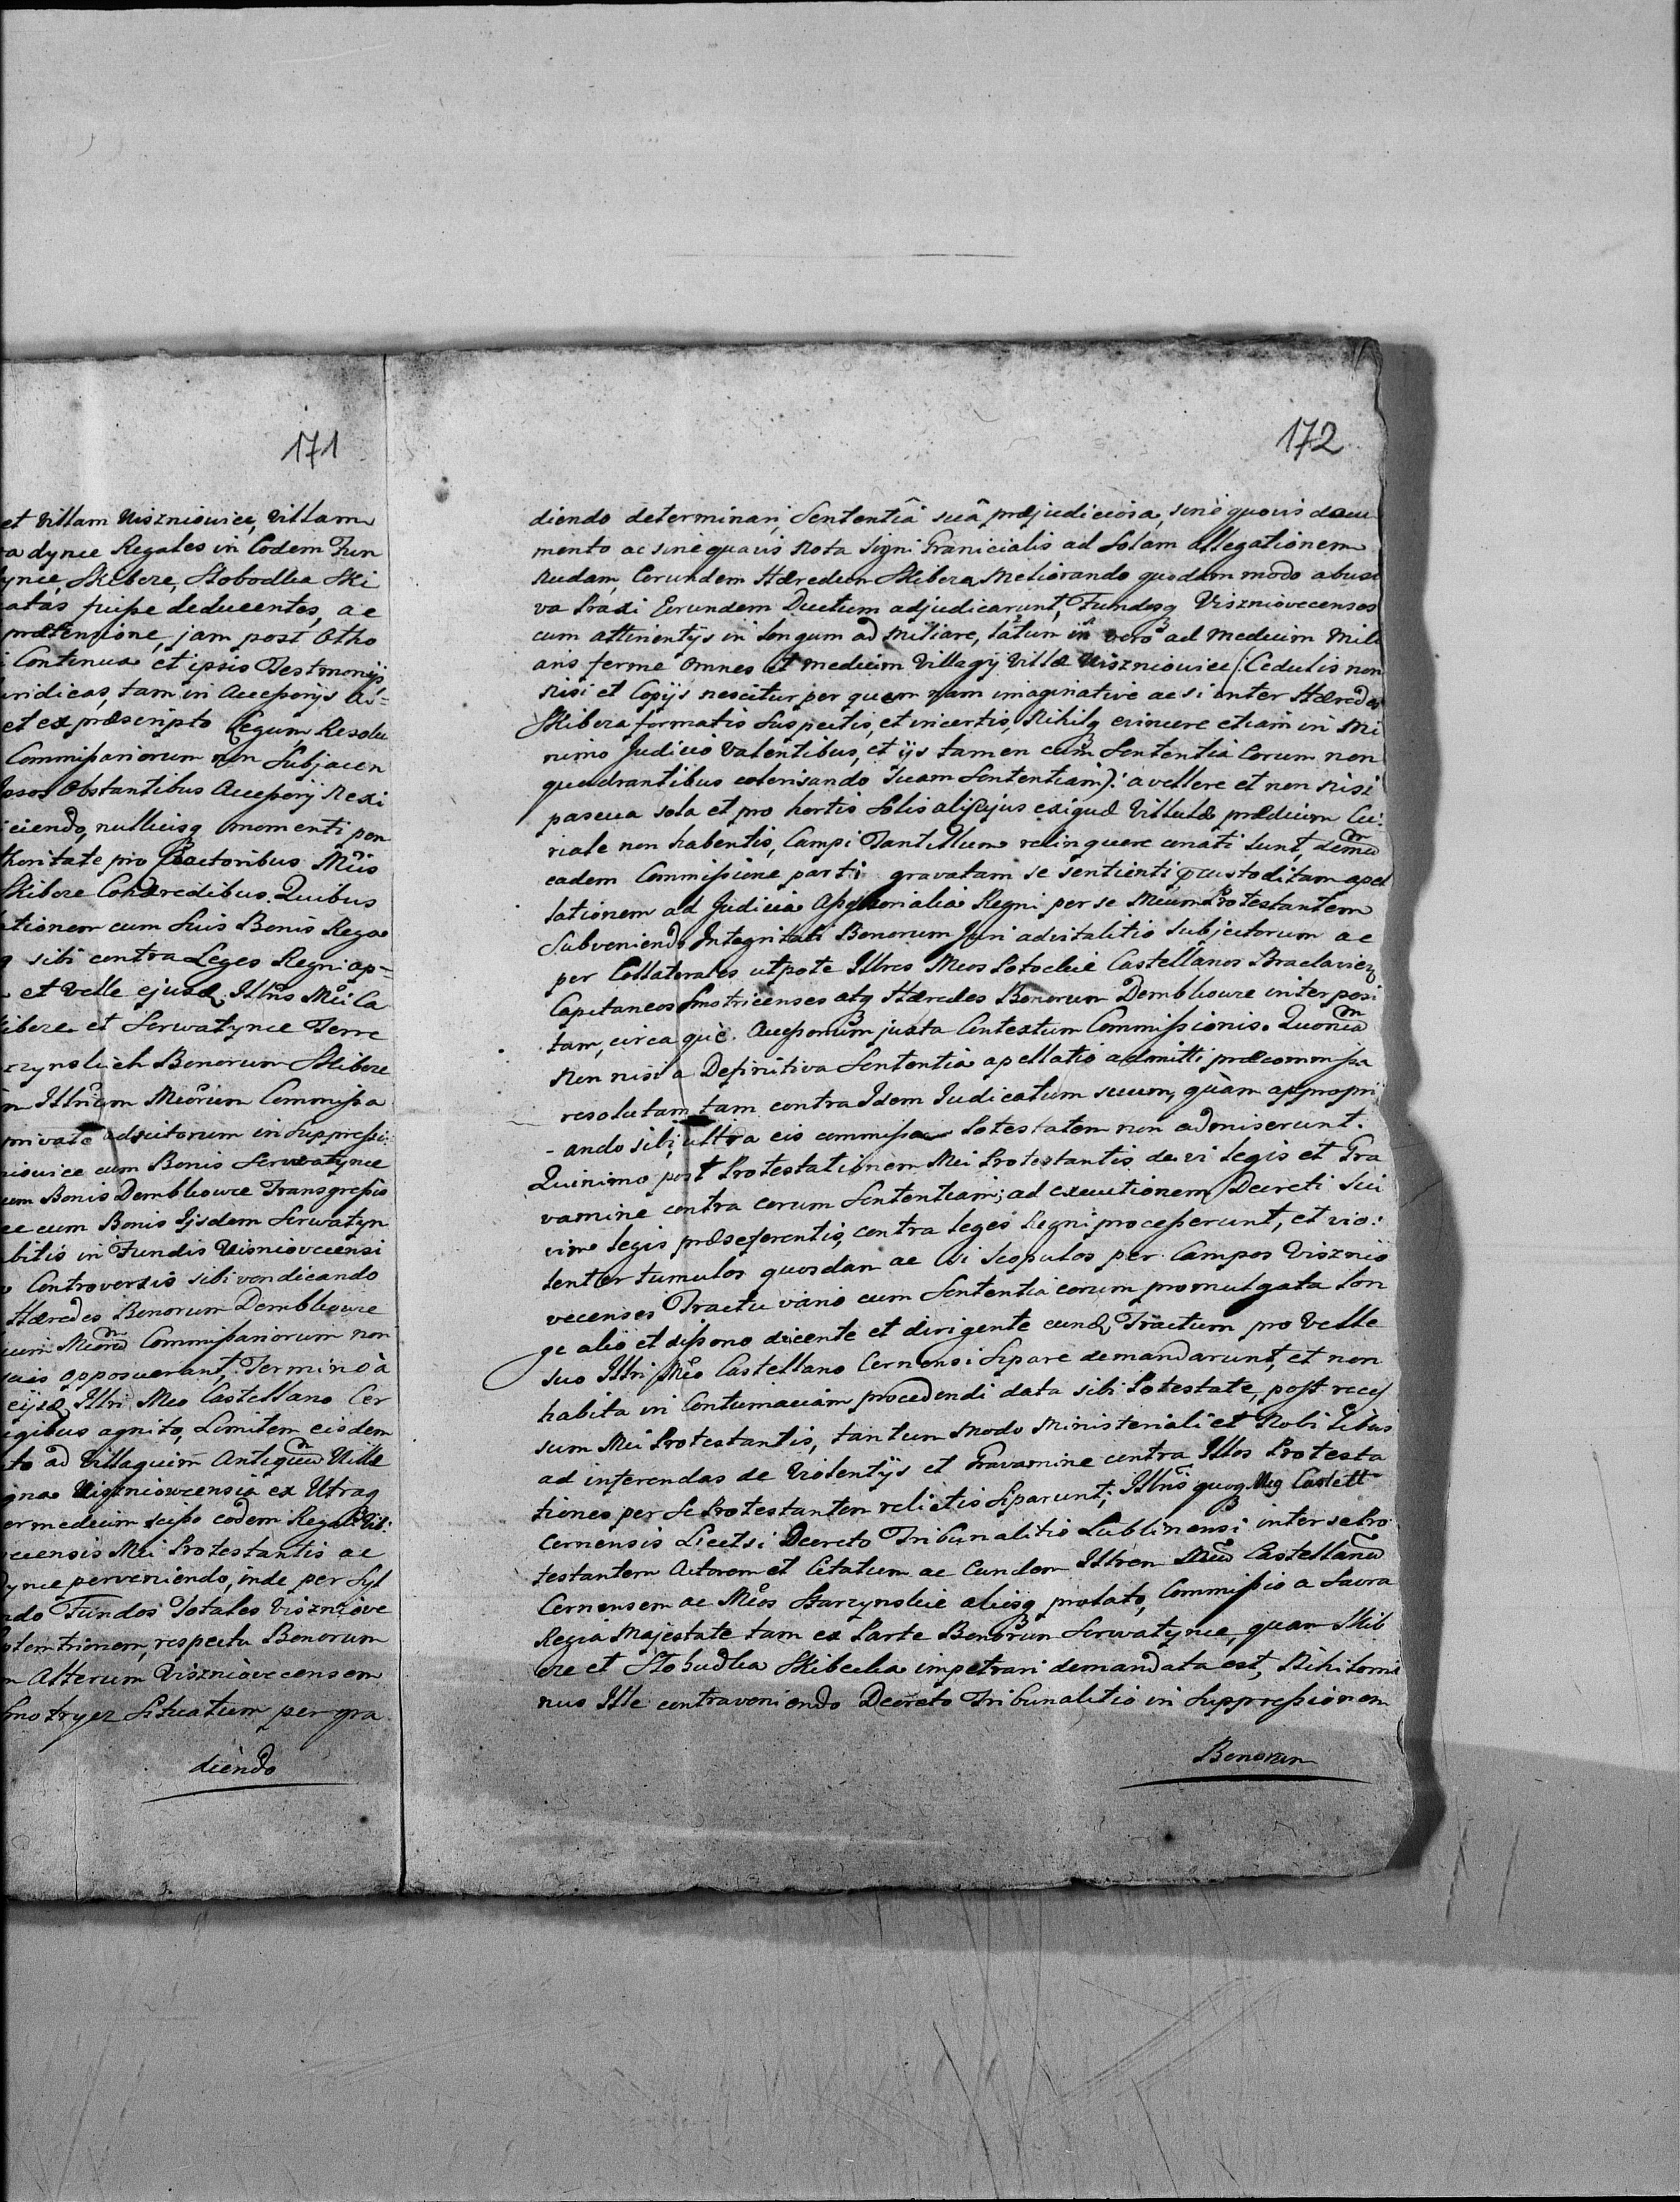 171
et Villam Viszniowice, Villam
dynce Regales in Eodem Fun
Skibere, Stobodka Ski
fuisse deducentes, ac
prætensione, jam post Otho
Continua et ipsis Testmonijs
uridicas, tam in Accessorijs
et ex præscripto Legum Resolu
Commissariorum non Subjacen
Obstantibus Accessorij Rexi
iciendo, nulliusq momenti pon
thoritate pro Actoribus Mcis
Skibere Cohæredibus. Quibus
tionem cum Suis Bonis Rega
sibi contra Leges Regni ap=
et Velle ejusd. Illris Mci Ca
et Serwatynce Terre
rzynskich Bonorum Skibere
Illrium Mcorum Commissa
private adscitorum in Suppressi:
niowice cum Bonis Serwatynce
cum Bonis Dembkowce Transgressio
ce cum Bonis Ijsdem Serwatyn
bitis in Fundis Visniovecensi
Controversis sibi vendicando
Hæredes Bonorum Dembkowce
Commissariorum non
suis opposuerant, Termino à
ejusd. Illri Mco Castellano Cer
igibus agnito, Limitem eisdem
to ad Villagium Antiquum Ville
gna Viszniowcensia ex Utraq
er medium scisso eodem Regali
censis Mci Protestantis ac
ynce perveniendo, inde per Syl
ndo Fundos Totales Vizniove
tentrionem, respectu Bonorum
Alterum Viszniovecensem
Smotrycz Situatum per gra
diendo
172
diendo determinari, Sententiâ suâ præjudiciosa, sine quovis docu
mento ac sine quavis Nota Signi Granicialis ad Solam Allegationem
Nudam, Eorundem Hæredum Skibera Meliorando quodam modo abusi
va Praxi Eorundem Ductum adjudicarunt, Fundosq Viszniovecenses
cum attinentijs in longum ad Miliare, latum in vero ad Medium Mili
aris ferme omnes et medium Villagij Villæ Viszniowice /: Cedulis non
nisi et Copijs nescitur per quem nam imaginative ac si inter Hæredes
Skibera formatis Suspectis, et incertis, Nihilq evincere etiam in Mi
nimo Judicio Valentibus, et ijs tamen cum Sententia Eorum non
quadrantibus colorisando Suam Sententiam :/ avellere et non nisi
pascua sola et pro hortis Solis alicujus exiguæ Villulæ prædium Cu:
riale non habentis, Campi Tantillum relinquere conati sunt, demum
eadem Commissione parti gravatam se sentienti custoditam apel
lationem ad Judicia Assessorialia Regni per se Mcum Protestantem
Subveniendo Integritati Bonorum Juri advitalitio Subjectorum ac
per Collaterales utpote Illres Mcos Potockie Castellanos Braclavien
Capitaneos Smotricenses atq Hæredes Bonorum Dembkowce interposi
tam, circa què Accessorium juxta Contextum Commissionis. Quoniam
Non nisi a Definitiva Sententia apellatio admitti præcommissa
resolutam tam contra Idem Judicatum suum, quàm appropri
-ando sibi, ultra eis commissam Potestatem non admiserunt.
Quinimo post Protestationem Mci Protestantis de vi legis et Gra
vamine contra eorum Sententiam; ad executionem Decreti Sui
vim legis præseferentis, contra leges Regni processerunt, et vio:
lenter tumulos quosdam ac si Scopulos per Campos Visznio
vecenses Tractu vario cum Sententia eorum promulgata lon
ge alio et dissono ducente et dirigente eund. Tractum pro Velle
suo Illri Mco Castellano Cernensi Sipare demandarunt, et non
habita in Contumaciam procedendi data sibi Potestate, post reces
sum Mci Protestantis, tantum modo Ministeriali et Nobilibus
ad inferendas de Violentijs et Gravamine contra Illos Protesta
tiones per Se Protestantem relictis Siparunt; Illris quoq Mcg Castell
Cernensis Licet si Decreto Tribunalitio Lublinensi inter se Pro
testantem Actorem et Citatum ac Eundem Illrem Mcum Castellanum
Cernensem ac Mcos Starzynskie aliosq prolato, Commissio a Sacra
Regia Majestate tam ex Parte Bonorum Serwatynce, quam Skib
re et Stobudka Skibecka impetrari demandata est, Nihilomi
nus Ille contraveniendo Decreto Tribunalitio in Suppressionem
Bonorum